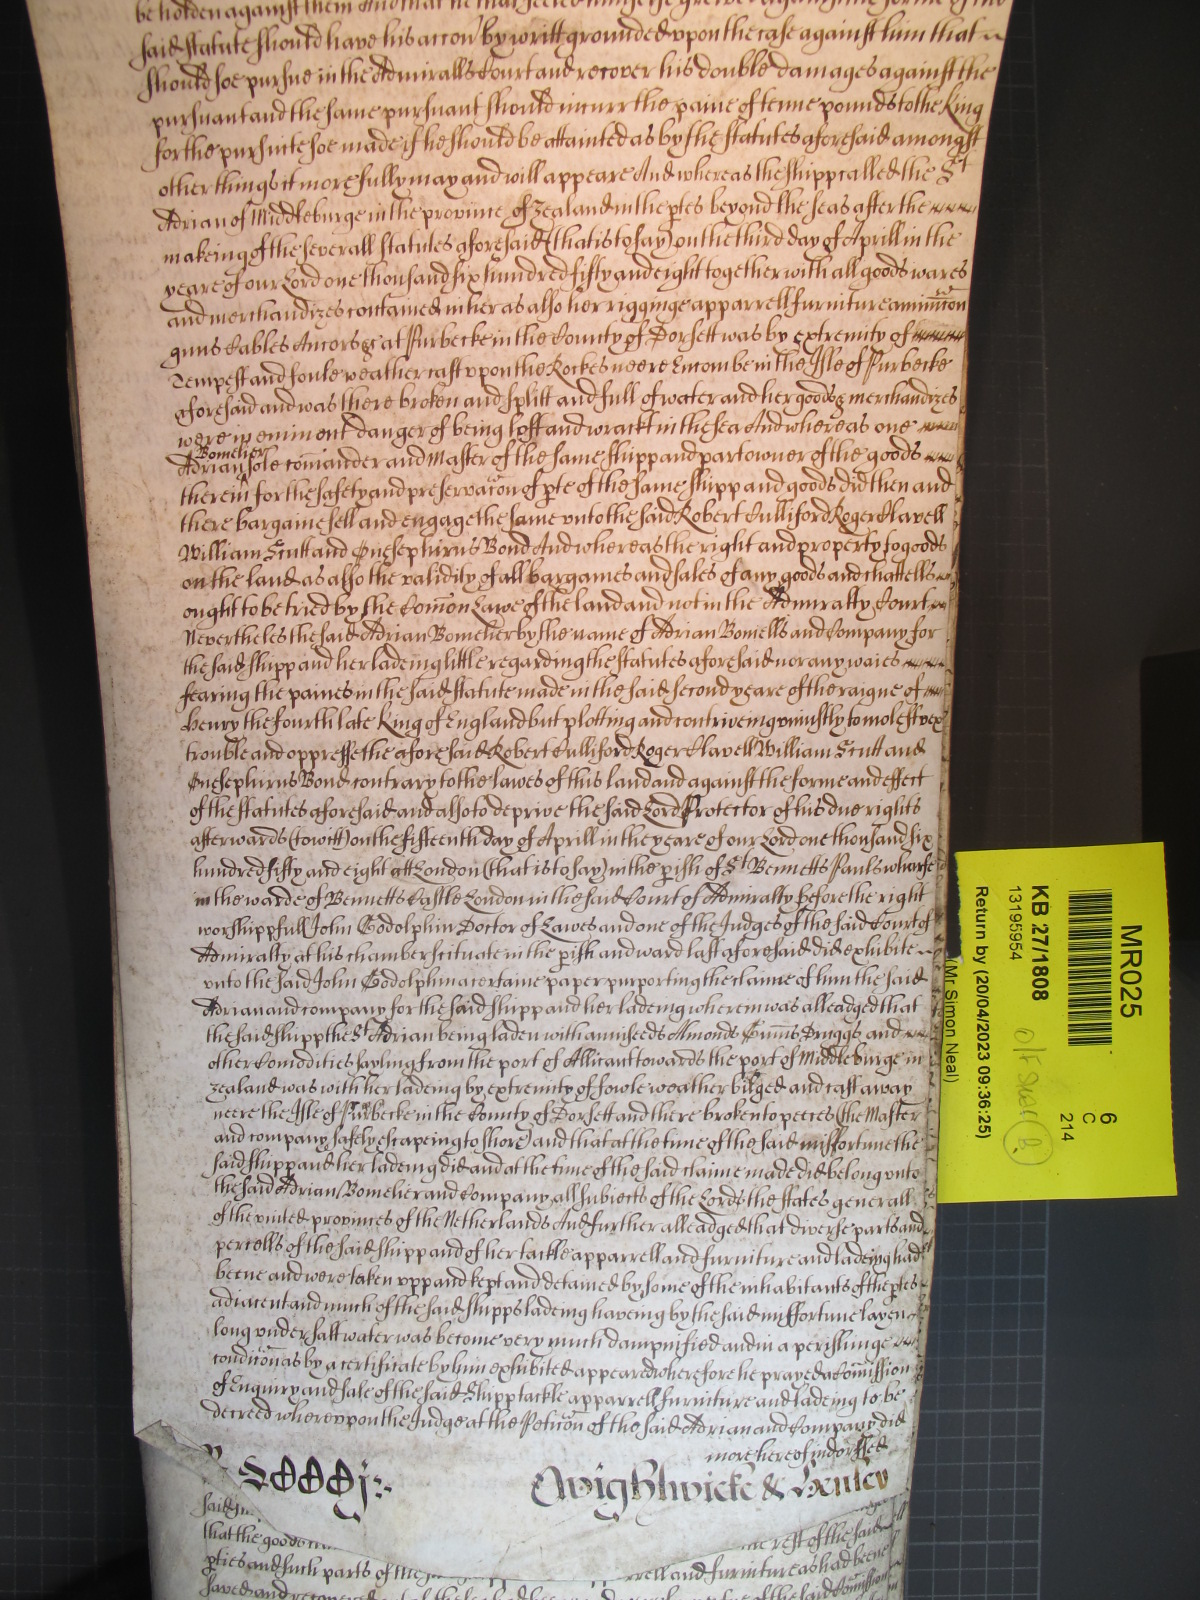 be holden against them And that he that feeleth himselfe greived against the forme of the
said statute should have his accon by writt grounded upon the case against him that
should soe pursue in the Admiralls Court and recover his double damages against the
pursuant and the same pursuant should incurr the paine of tenne pounds to the King
for the pursuite soe made if he should be attainted as by the statutes aforesaid amongst
other things it more fully may and will appeare And whereas the shipp called the St
Adrian of Middleburge in the province of Zealand in the ptes beyond the seas after the
makeing of the severall statutes aforesaid (that is to say) on the third day of Aprill in the
yeare of our Lord one thousand six hundred fifty and eight together with all goods wares
and merchandizes contained in her as also her rigginge apparrell furniture aminicon
guns Cables Ancors &c at Purbecke in the County of Dorsett was by extremity of
Tempest and foule weather cast upon the Rockes neere Encombe in the Isle of Purbecke
aforesaid and was there broken and splitt and full of water and her goods & merchandizes
were in eminent danger of being lost and wrackt in the sea And whereas one
Adrian Bomelier sole comander and Master of the same shipp and part owner of the goods
therein for the safety and preservacon of pte of the same shipp and goods did then and
there bargaine sell and engage the same unto the said Robert Culliford Roger Clavell
William Scutt and Onesephirus Bond And whereas the right and property to goods
on the land as also the validity of all bargames and sales of any goods and chattells
ought to be tried by the Comon Lawe of the land and not in the Admiralty Court
Nevertheles the said Adrian Bomelier by the name of Adrian Bomells and Company for
the said shipp and her ladeing little regarding the statutes aforesaid nor any waies
fearing the paines in the said statute made in the said second yeare of the raigne of
Henry the fourth late King of England but plotting and contriveing uniustly to molest vex
trouble and oppresse the aforesaid Robert Culliford Roger Clavell William Scutt and
Onesephirus Bond contrary to the lawes of this land and against the forme and effect
of the statutes aforesaid and also to deprive the said Lord Protector of his due rights
afterwards (to witt) on the fifteenth day of Aprill in the yeare of our Lord one thousand six
hundred fifty and eight att London (that is to say) in the pish of St Bennetts Pauls wharfe
in the warde of Bennetts Castle London in the said Court of Admiralty before the right
worshippfull John Godolphin Doctor of Lawes and one of the Judges of the said Court of
Admiralty at his chamber scituate in the pish and ward last aforesaid did exhibite
unto the said John Godolphin a certaine paper purporting the claime of him the said
Adrian and company for the said shipp and her ladeing wherein was alleadged that
the said shipp the St Adrian being laden with anniseeds Almonds Gumms Druggs and
other Comodities sayling from the port of Allicant towards the port of Middleburge in
Zealand was with her ladeing by extremity of fowle weather bilged and cast away
neere the Isle of Purbecke in the County of Dorsett and there broken to peeces (the Master
and company safely escapeing to shore) and that at the time of the said missfortune the
said shipp and her ladeing did and at the time of the said claime made did belong unto
the said Adrian Bomelier and Company all subiects of the Lords the states generall
of the united provinces of the Netherlands And further alleadged that diverse parts and
percells of the said shipp and of her tackle apparrell and furniture and ladeing had
beene and were taken upp and kept and detained by some of the inhabitants of the ptes
adiacent and much of the said shipps ladeing haveing by the said missfortune layen
long under salt water was become very much dampnified and in a perishinge
condicon as by a certificate by him exhibited appeared wherefore he prayed a Comission
of Enquiry and sale of the said Shipp tackle apparrell furniture and ladeing to be
decreed whereuppon the Judge at the Peticon of the said Adrian and Company did
more hereof indorssed
Wightwicke & Henley
said
that the goods rest of the said
pties and such parts of the rell and furniture as had beene
saved and recovered of the said Comission
MR025
6
C
214
KB 27/1808
13195954
Return by (20/04/2023 09:36:25)
(Mr Simon Neal)